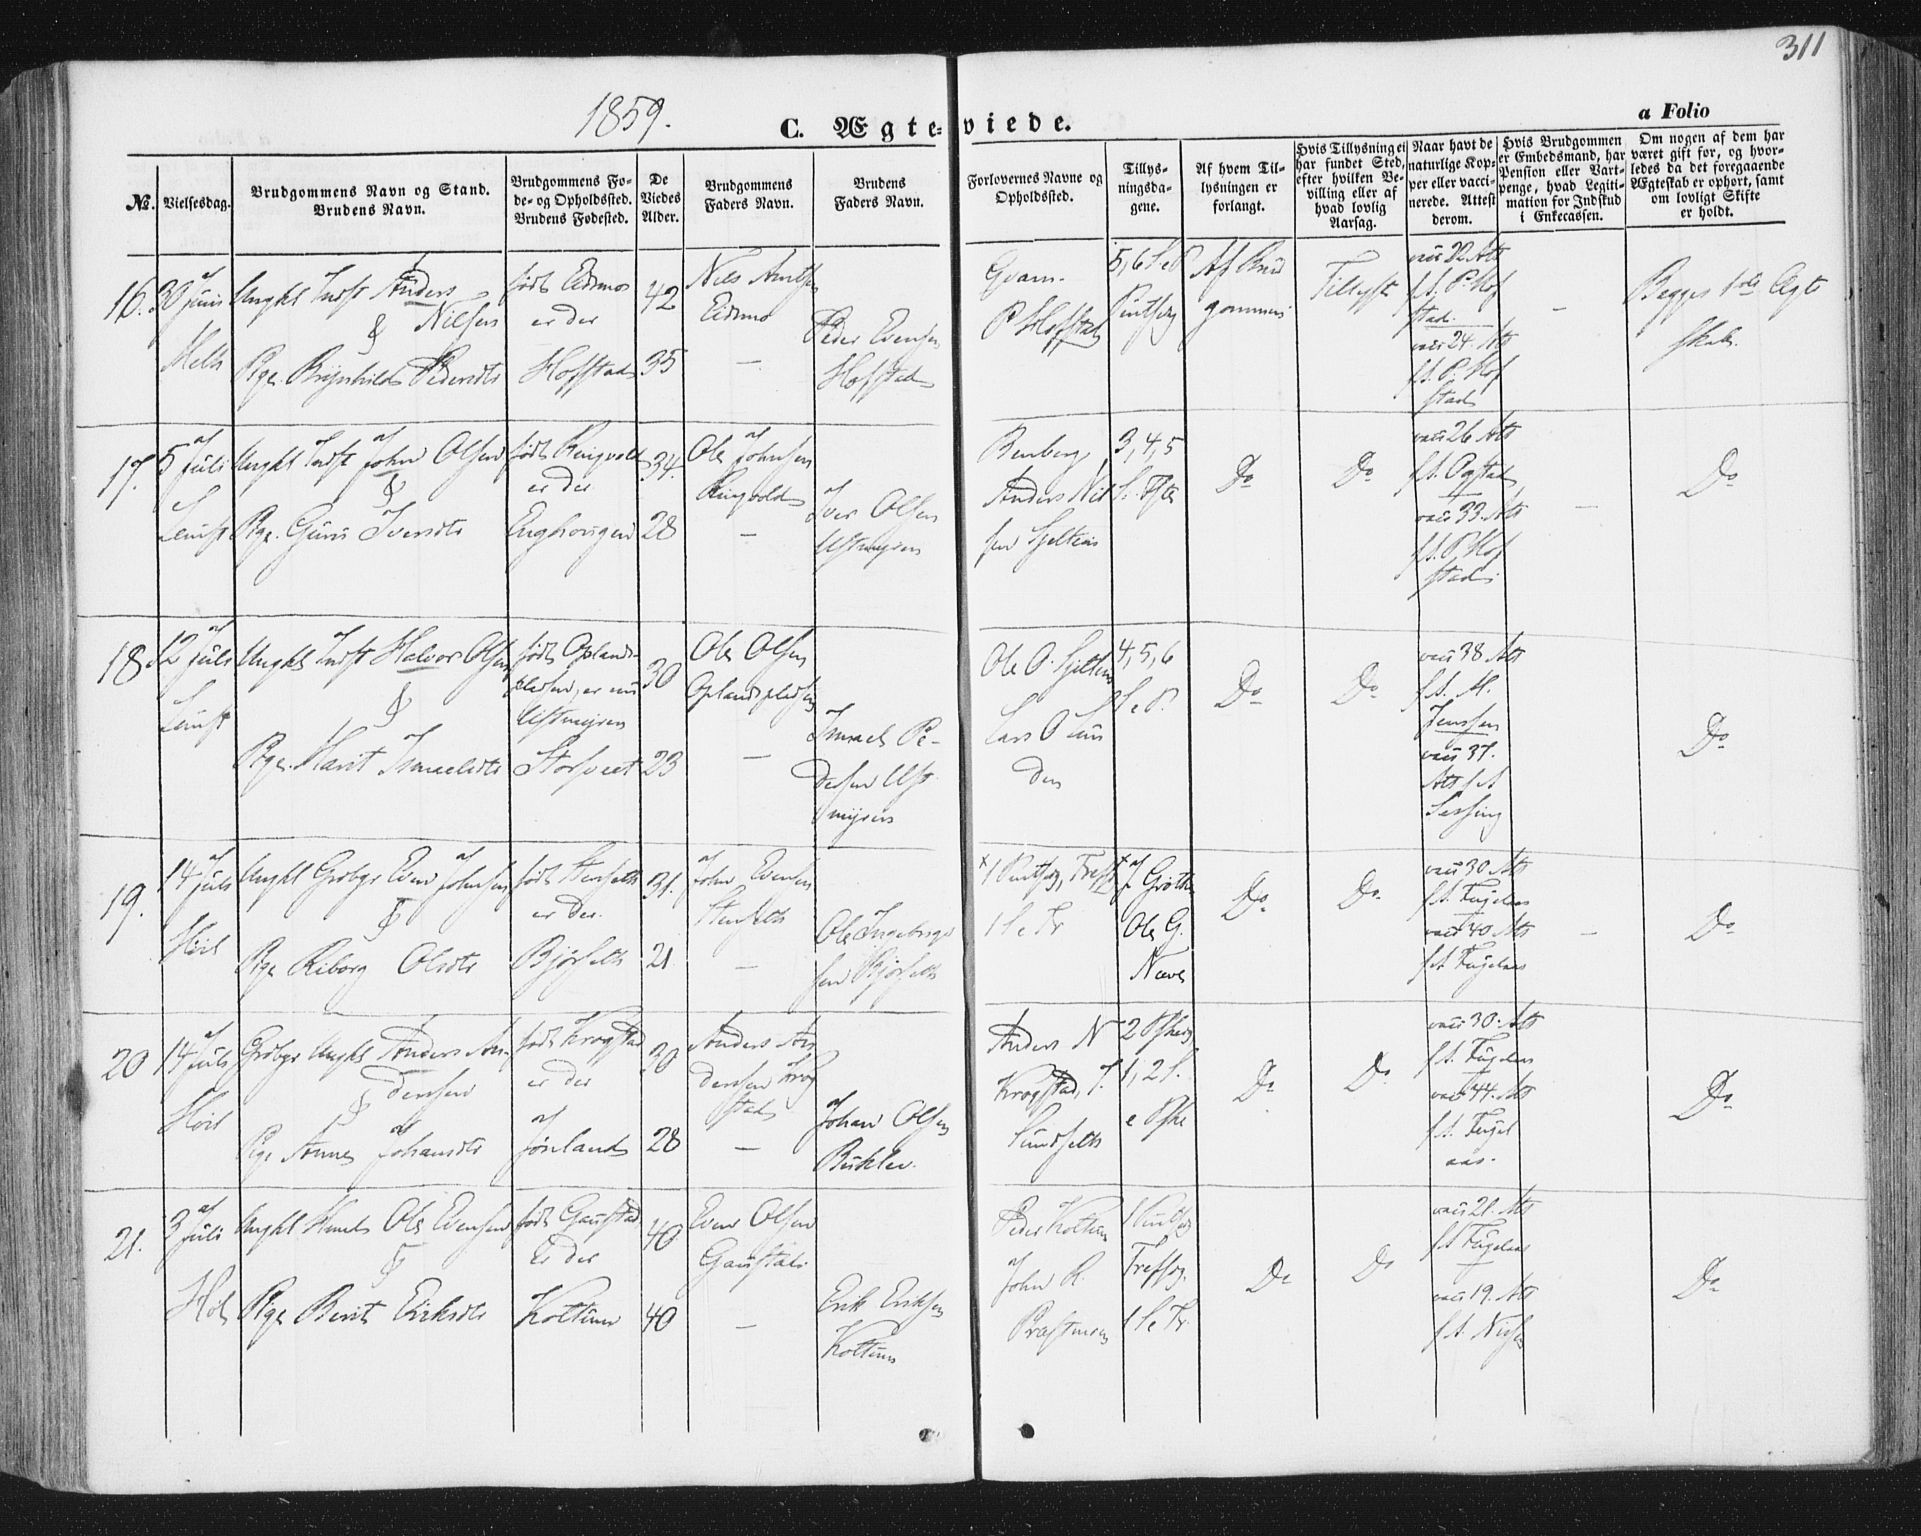 311
1859.
C. Ægteviede.
a Folio
No.
Vielsesdag.
Brudgommens Navn og Stand.
Brudens Navn.
Brudgommens Fo-
de- og Opholdssted.
Brudens Fødested.
De
Viedes
Alder.
Brudgommens
Faders Navn.
Brudens
Faders Navn.
Forlovernes Navne og
Opholdssted.
Tillys-
ningsda-
gene.
Af hvem Til-
lysningen er
forlangt.
Hvis Tillysning ei
har fundet Sted,
efter hvilken Be-
villing eller af
hvad lovlig
Aarsag.
Naar havt de
naturlige Kop-
per eller vacci-
nerede. Attest
derom.
Hvis Brudgommen
er Embedsmand, har
Pension eller Vart-
penge, hvad Legiti-
mation for Indskud
i Enkecassen.
Om nogen af dem har
været gift før, og hvor-
ledes da det foregaaende
Ægteskab er ophørt, samt
om lovligt Skifte
er holdt.
16. 30 Juni
Melh
Ungkl Indst Anders
Nilsen
&
Pige Brynhild Pedersdtr
født Eidsmo
er der
Hofstad
42
35
Nils Arntsen
Eidsmo
—
Peder Evensen
Hofstad
Gvam
P Hofstad
5, 6 S. e P
Pintsdg
Af Brud
gommen
Tillyst
vacc 22 Att
f. A. P. Hof
stad.
vacc 24. Att
f. A. P. Hof
stad
—
Begges 1ste Ægte
skab.
17. 5 Juli
Leinst
Ungkl Indst John Olsen
&
Pige Guru Iversdtr
født Ringvold
er der
Enghougen
34.
28
Ole Johnsen
Ringvold
—
Iver Olsen
Ustmyren
Benberg
Anders Nil
sen Skjeltein
3, 4, 5
Do
Do
vacc 26 Att
f. A. Ogstad
vacc 33. Att
f. A. P. Hof
stad
—
Do
18 12 Juli
Leinst
Ungkl Indst Halvor Olsen
&
Pige Marit Ismaelsdtr
født Oplands-
pladsen, er nu
Ustmyren
Storsveet
30
23
Ole Olsen
Oplandspladsen
—
Ismael Pe-
dersen Ust
myren
Ole O. Skjeltein
Lars O
den
4, 5, 6
S. e P.
Do
Do
vacc 38 Att
f. A. M.
Jenssen
vacc 37.
Att f A
Lessing
Do
19. 14 Juli
Höil
Ungkl Grdbgr Even Johnsen
&
Pige Kiborg Olsdtr
født Stenseth
er der
Bjørseth
31.
21
John Evensen
Stenseth
—
Ole Ingebrigt
sen Bjørseth
1 Pintsdg, Trefft
1 S e Tr
J Grøth
Ole G.
Næve
Do
Do
vacc 30 Att
f. A. Fuglaas
vacc 40 Att
f. A. Fuglaas
—
Do
20 14 Juli
Höil
Grdbgr Ungkl Anders An-
dersen
&
Pige Anne Johansdtr
født Krogstad
er der
Jønland
30
28
Anders An
dersen Krog
stad
—
Johan Olsen
Buhlen
Anders N
Krogstad, T.
Sundseth
2 Pskedg
1, 2 S.
e Pske
Do
Do
vacc 30. Att
f. A. Fuglaas
vacc 44. Att
f. A. Fugl
aas.
Do
21. 3 Juli
Höl
Ungkl Ole Evensen
&
Pige Berit Eriksdtr
født Gaustad
er der
Kottum
40
40
Even Olsen
Gaustad
—
Erik Eriksen
Kottum
Peder Kottum
John R.
Præstmoen
1 Pintsdg
Trefsdg.
1 S e Tr.
Do
Do
vacc 21. Att
f. A. Fuglaas
vacc 19. Att
f. A.
Do